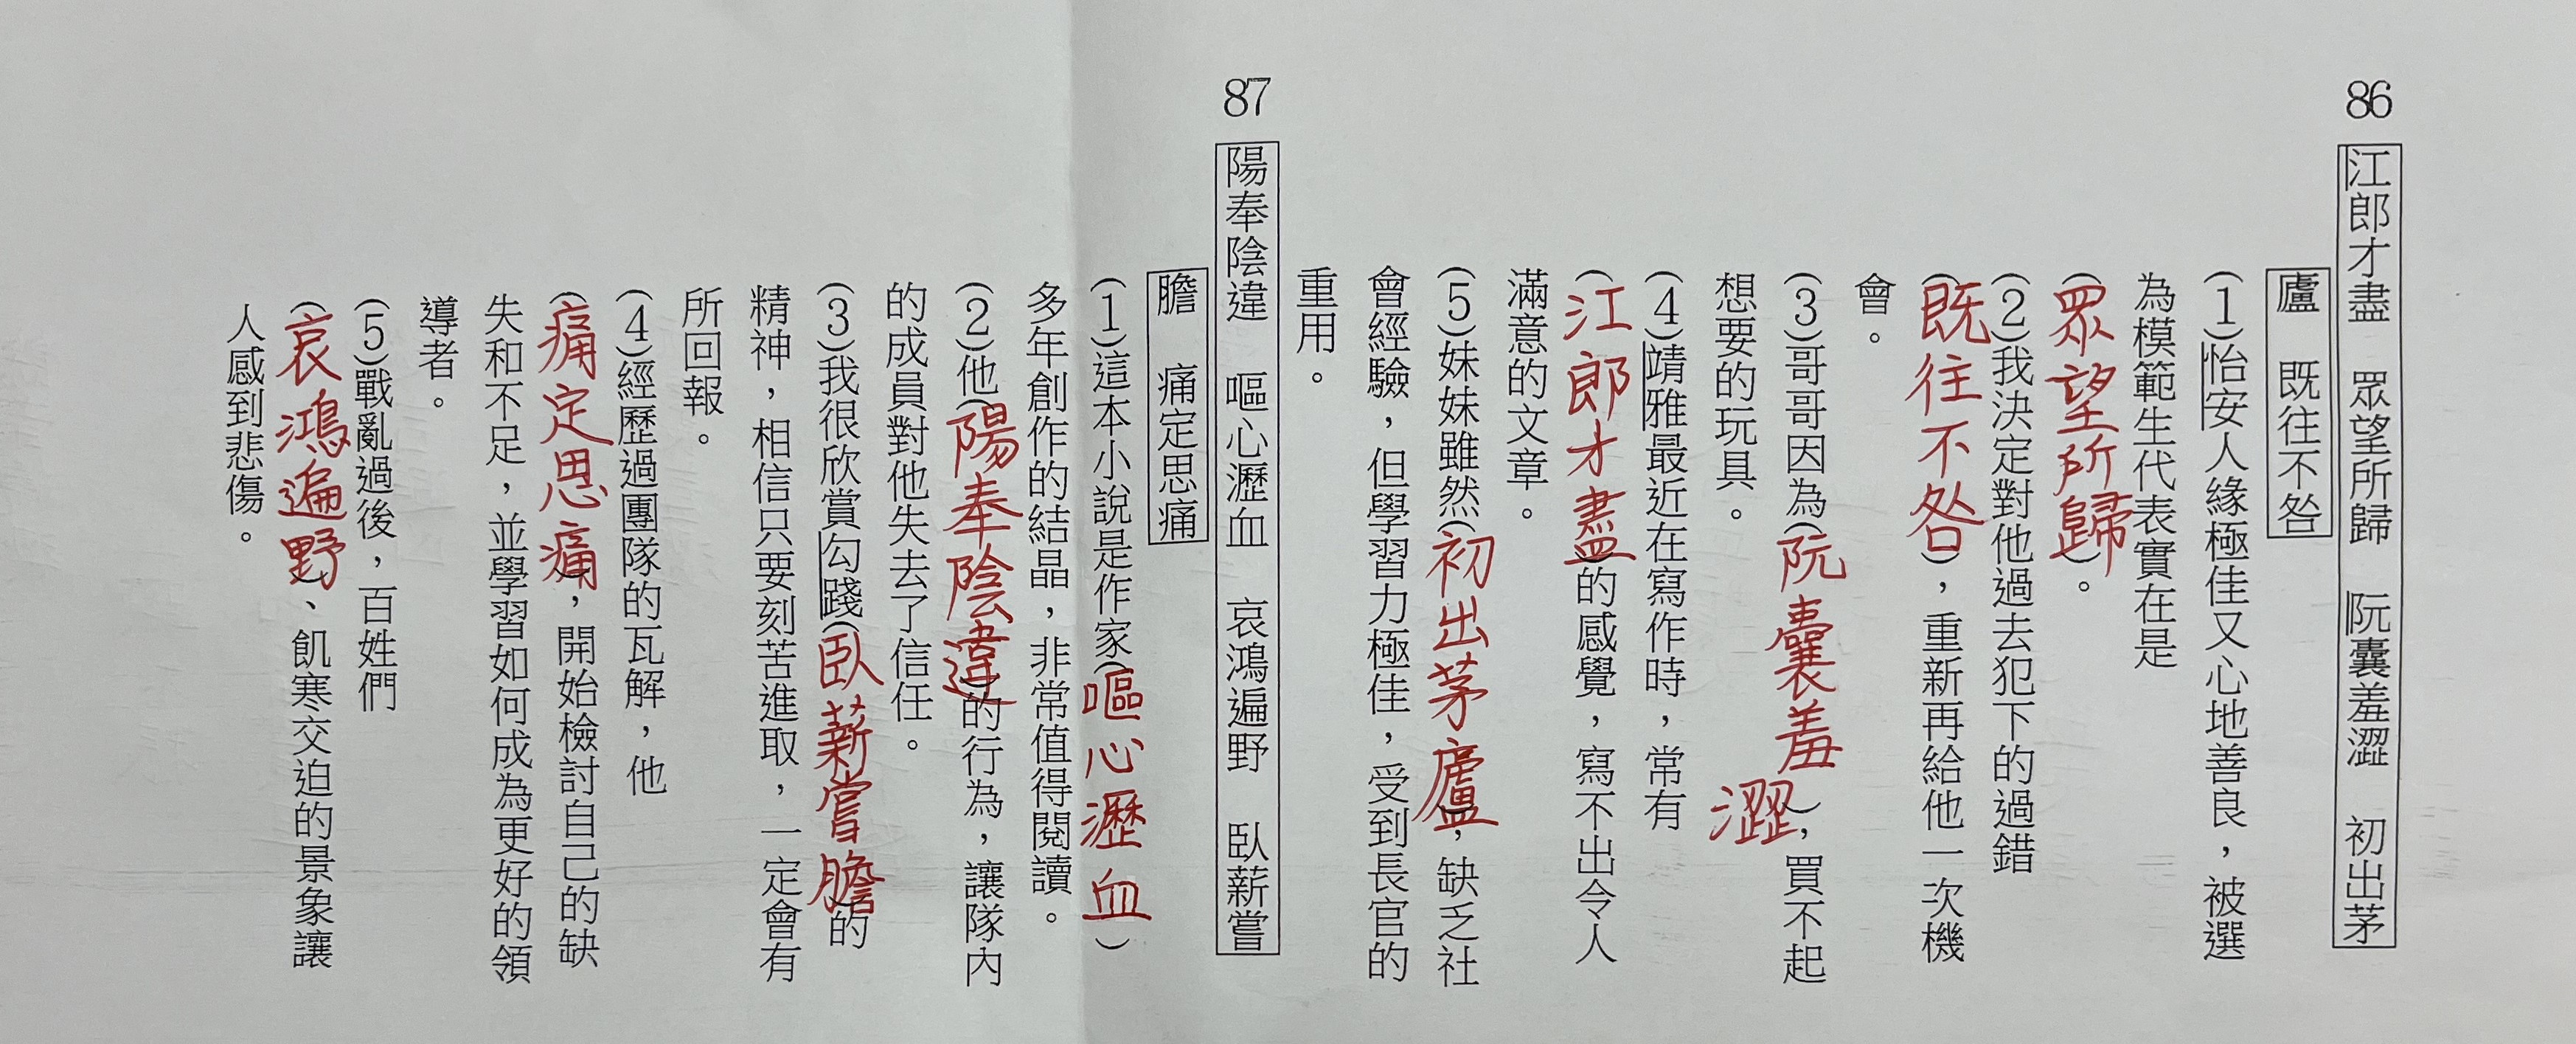 86
江郎才盡 眾望所歸 阮囊羞澀 初出茅
廬 既往不咎
(1)怡安人緣極佳又心地善良，被選
為模範生代表實在是
(眾望所歸)。
(2)我決定對他過去犯下的過錯
(既往不咎)，重新再給他一次機
會。
(3)哥哥因為(阮囊羞澀)，買不起
想要的玩具。
(4)靖雅最近在寫作時，常有
(江郎才盡)的感覺，寫不出令人
滿意的文章。
(5)妹妹雖然(初出茅廬)，缺乏社
會經驗，但學習力極佳，受到長官的
重用。
87
陽奉陰違 嘔心瀝血 哀鴻遍野 臥薪嘗
膽 痛定思痛
(1)這本小說是作家(嘔心瀝血)
多年創作的結晶，非常值得閱讀。
(2)他(陽奉陰違)的行為，讓隊內
的成員對他失去了信任。
(3)我很欣賞勾踐(臥薪嘗膽)的
精神，相信只要刻苦進取，一定會有
所回報。
(4)經歷過團隊的瓦解，他
(痛定思痛)，開始檢討自己的缺
失和不足，並學習如何成為更好的領
導者。
(5)戰亂過後，百姓們
(哀鴻遍野)、飢寒交迫的景象讓
人感到悲傷。